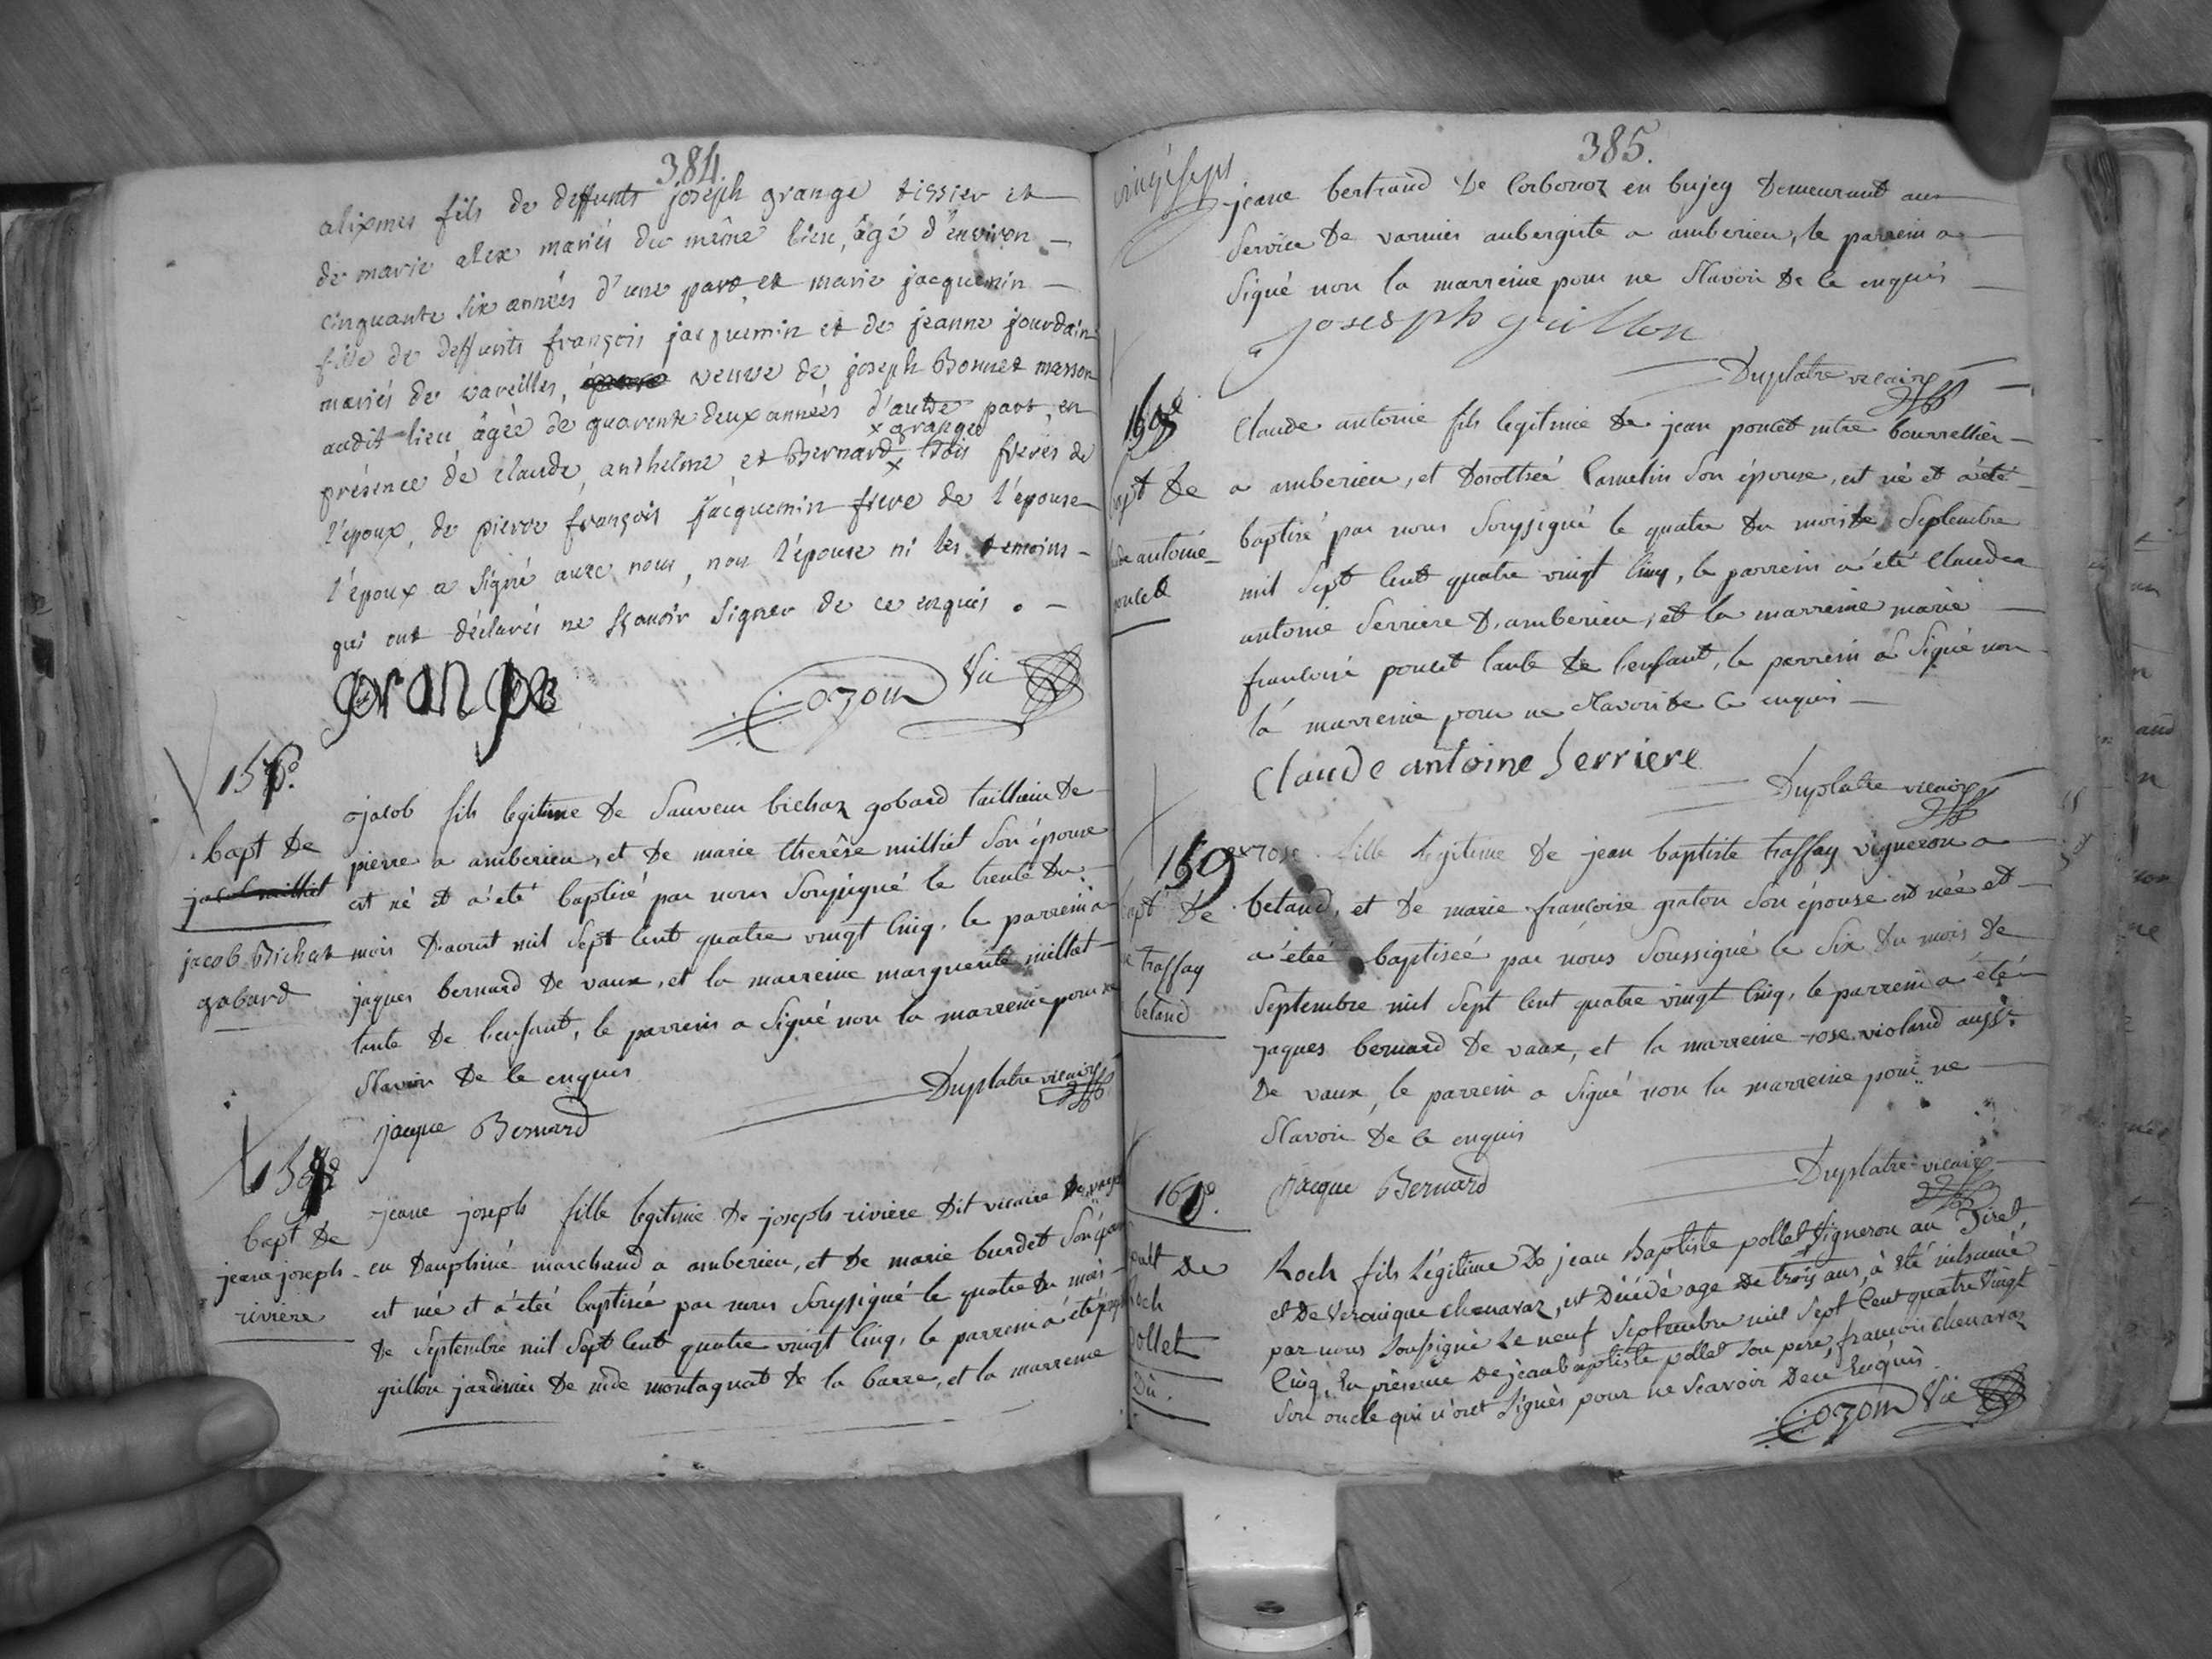 384.
alixmes fils de deffunts joseph grange tissier et
de marie alex mariés du même lieu, âgé d'environ
cinquante six années d'une part, et marie jacquemin
fille de deffunts françois jacquemin et de jeanne jourdain
mariés de vareilles, veuve de joseph Bonnet masson
audit lieu âgée de quarente deux années d'autre part, en
x grange
présence de claude, anthelme et Bernard x trois freres de
l'époux, de pierre françois jacquemin frere de l'épouse
l'époux a signé avec nous, non l'épouse ni les temoins
qui ont déclarés ne sçavoir signer de ce enquis.
grange
Cozon Vic
156.
bapt de
jacob Bichat
gobard
jacob fils legitime de Sauveur bichaz gobard tailleur de
pierre a amberieu, et de marie therêse milliet son épouse
est né et a été baptisé par nous soussigné le trente du
mois d'aoust mil sept cent quatre vingt cinq, le parrein a
jaques bernard de vaux, et la marreine marguerite milliet
tante de l'enfant, le parrein a signé non la marreine pour ne
sçavoir de ce enquis
Duplatre vicaire
jacque Bernard
bapt de
jeane joseph
riviere
jeane joseph fille legitime de joseph riviere dit vicaire de
en Dauphiné marchand a amberieu, et de marie burdet son
est née et a étée baptisée par nous soussigné le quatre du mois
de septembre mil sept cent quatre vingt cinq, le parrein a été
grillon jardinier de mde montagnat de la barre, et la marreine
385.
vingt sept
jeane bertrand de Corbonoz en bujey demeurant au
service de varnier aubergiste a amberieu, le parrein a
signé non la marreine pour ne sçavoir de ce enquis
joseph grillon
Duplatre vicaire
bapt de
antoine
poncet
Claude antoine fils legitime de jean poncet mtre bourrellier
a amberieu, et dorothée Camelin son épouse, est né et a été
baptisé par nous soussigné le quatre du mois de septembre
mil sept cent quatre vingt cinq, le parrein a été Claude
antoine serriere d'amberieu, et la marreine marie
francoise poncet tante de l'enfant, le parrein a signé non
la marreine pour ne sçavoir de ce enquis
Claude antoine Serriere
Duplatre vicaire
159
bapt de
traffay
betand
rose fille legitime de jean baptiste traffay vigneron a
betand, et de marie francoise graton son épouse est née et
a étée baptisée par nous soussigné le six du mois de
septembre mil sept cent quatre vingt cinq, le parrein a été
jaques bernard de vaux, et la marreine rose violand aussi
de vaux, le parrein a signé non la marreine pour ne
sçavoir de ce enquis
Duplatre vicaire
Jacque Bernard
de
Roch
Pollet
Roch fils légitime de jean Baptiste pollet vigneron au Tiret,
et de Veronique chenavaz, est décédé age de trois ans, à été inhumé
par nous soussigné le neuf septembre mil sept cent quatre vingt
Cinq, En présence de jean baptiste pollet son pere, françois chenavaz
son oncle qui n'ont signés pour ne scavoir de ce Enquis.
Cozon Vic